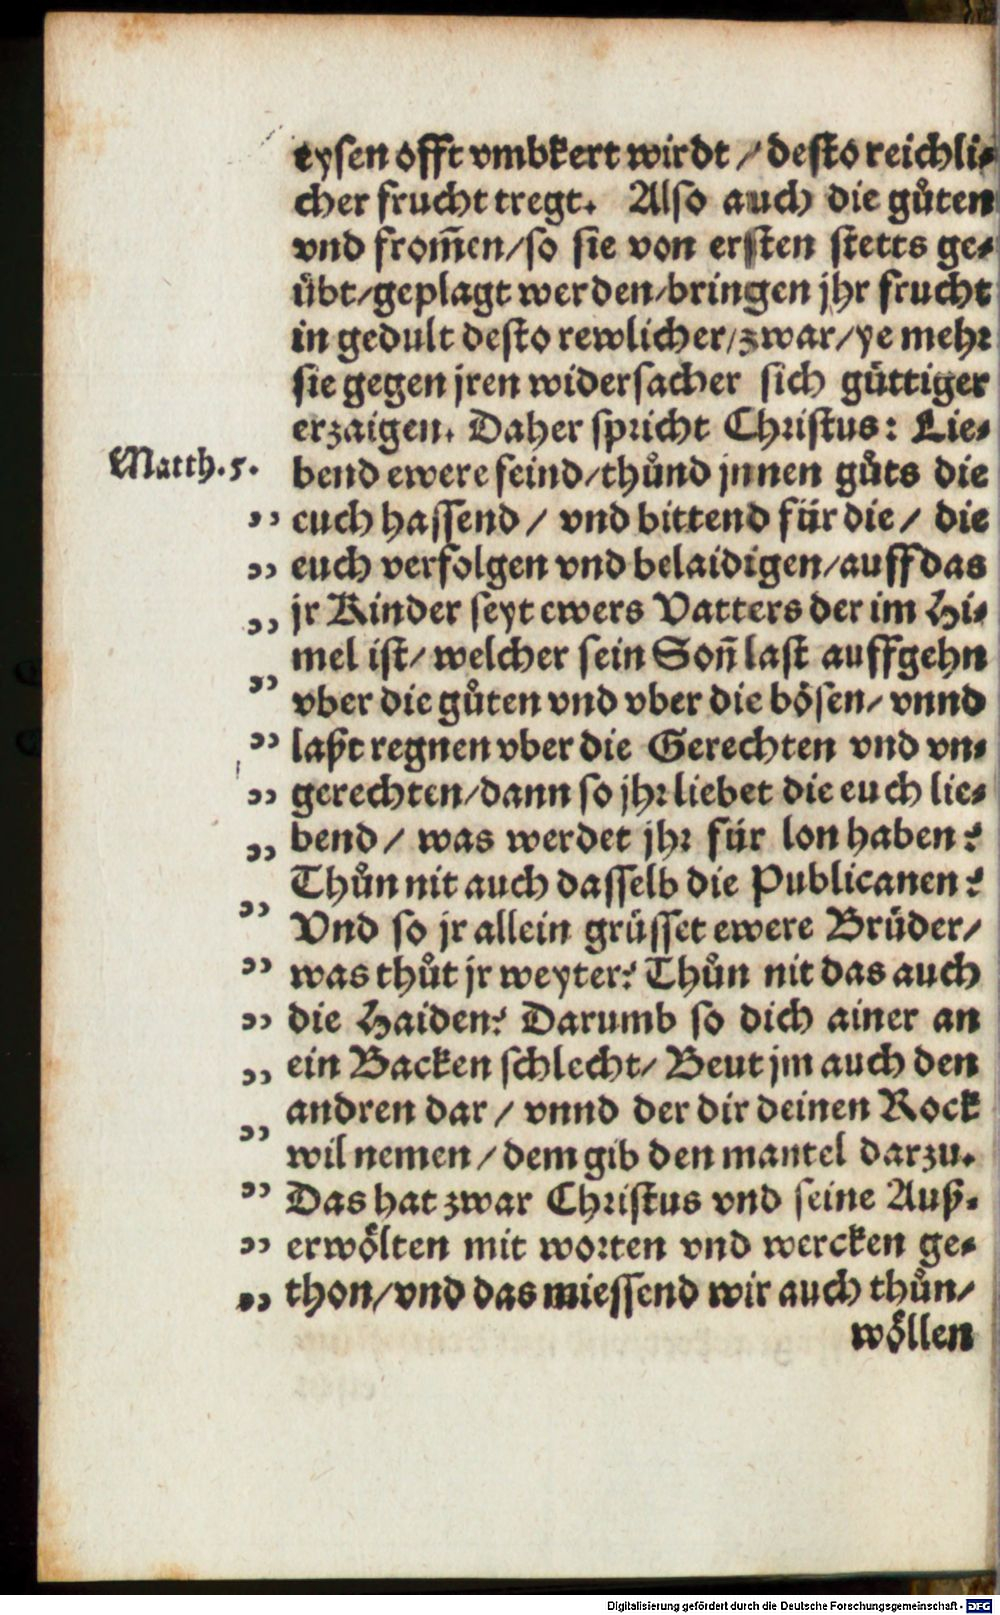 eysen offt vmbkert wirdt / desto reichli-
cher frucht tregt. Also auch die gůten
vnd from̃en/so sie von ersten stetts ge-
übt/geplagt werden/bringen jhr frucht
in gedult desto rewlicher/zwar/ye mehr
sie gegen jren widersacher sich güttiger
erzaigen. Daher spricht Christus: Lie-
Matth.5. bend ewere feind/thůnd jnnen gůts die
,, euch hassend / vnd bittend für die / die
,, euch verfolgen vnd belaidigen/auff das
,, jr Kinder seyt ewers Vatters der im Hi-
mel ist/ welcher sein Son̄ last auffgehn
,, vber die gůten vnd vber die bösen/ vnnd
,, laßt regnen vber die Gerechten vnd vn-
,, gerechten/dann so jhr liebet die euch lie-
,, bend / was werdet jhr für lon haben?
Thůn nit auch dasselb die Publicanen?
,, Vnd so jr allein grüsset ewere Brüder/
,, was thůt jr weyter? Thůn nit das auch
,, die Haiden? Darumb so dich ainer an
,, ein Backen schlecht/ Beut jm auch den
andren dar / vnnd der dir deinen Rock
,, wil nemen / dem gib den mantel darzu.
,, Das hat zwar Christus vnd seine Auß-
,, erwölten mit worten vnd wercken ge-
,, thon/vnd das miessend wir auch thůn/
wöllen
Digitalisierung gefördert durch die Deutsche Forschungsgemeinschaft - DFG